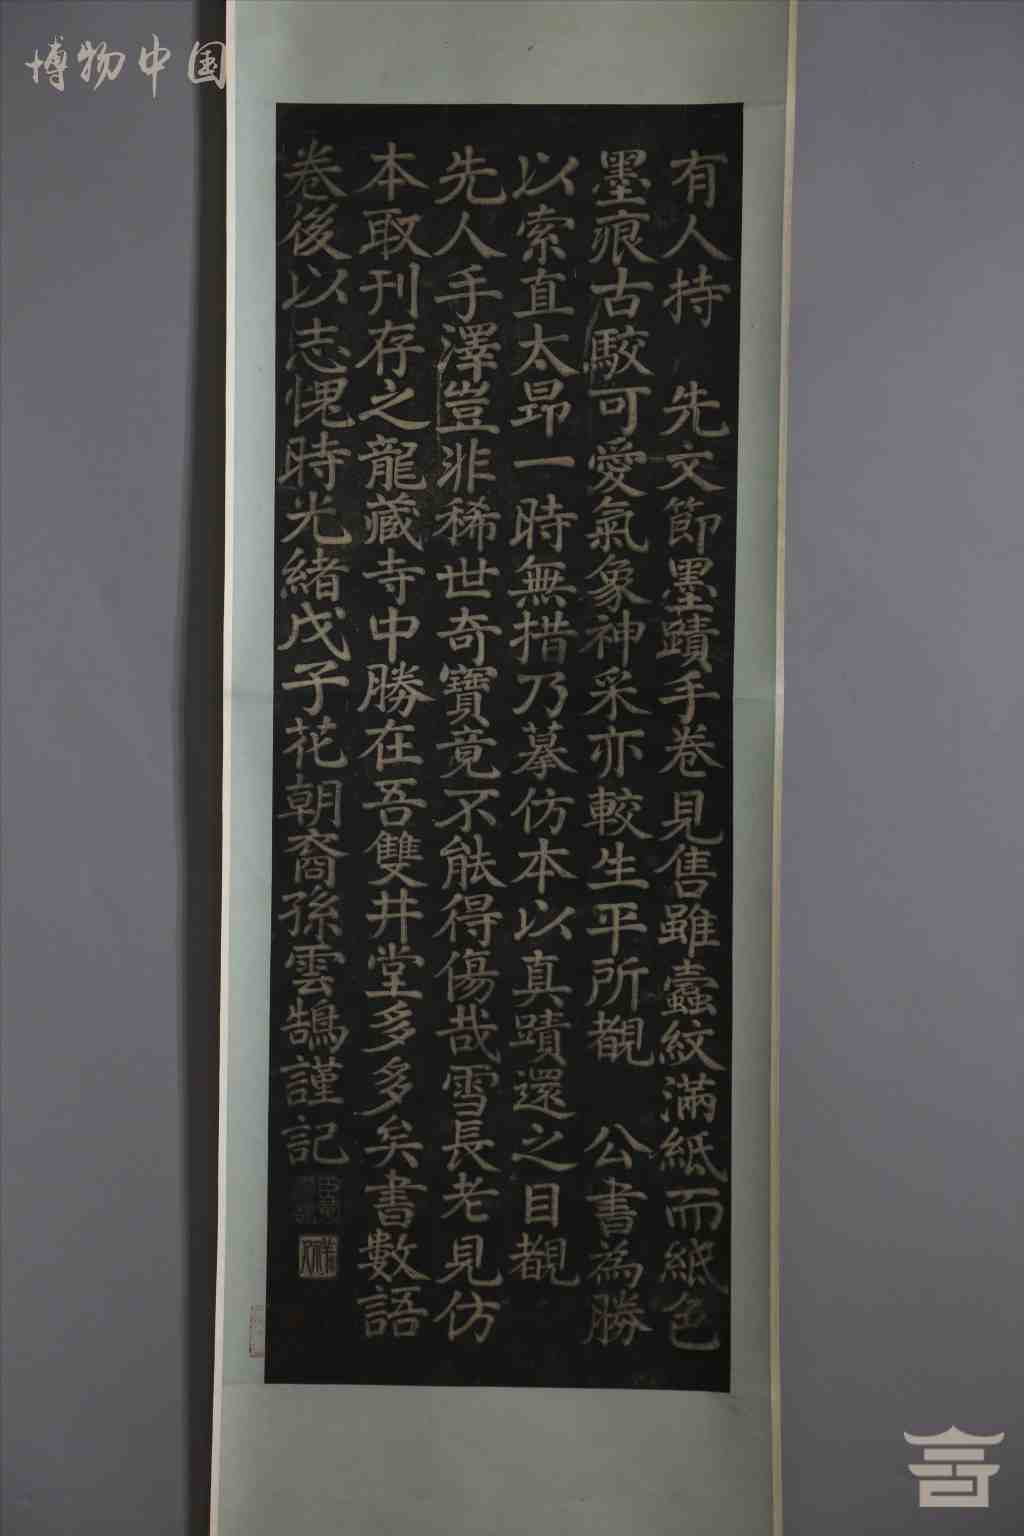 博物中国
有人持　先文節墨蹟手卷見售雖蠹紋滿紙而紙色
墨痕古駮可愛氣象神采亦較生平所覩　公書為勝
以索直太昂一時無措乃摹仿本以真蹟還之目覩
先人手澤豈非稀世奇寶竟不能得傷哉雪長老見仿
本取刊存之龍藏寺中勝在吾雙井堂多多矣書數語
卷後以志愧時光緒戊子花朝裔孫雲鵠謹記